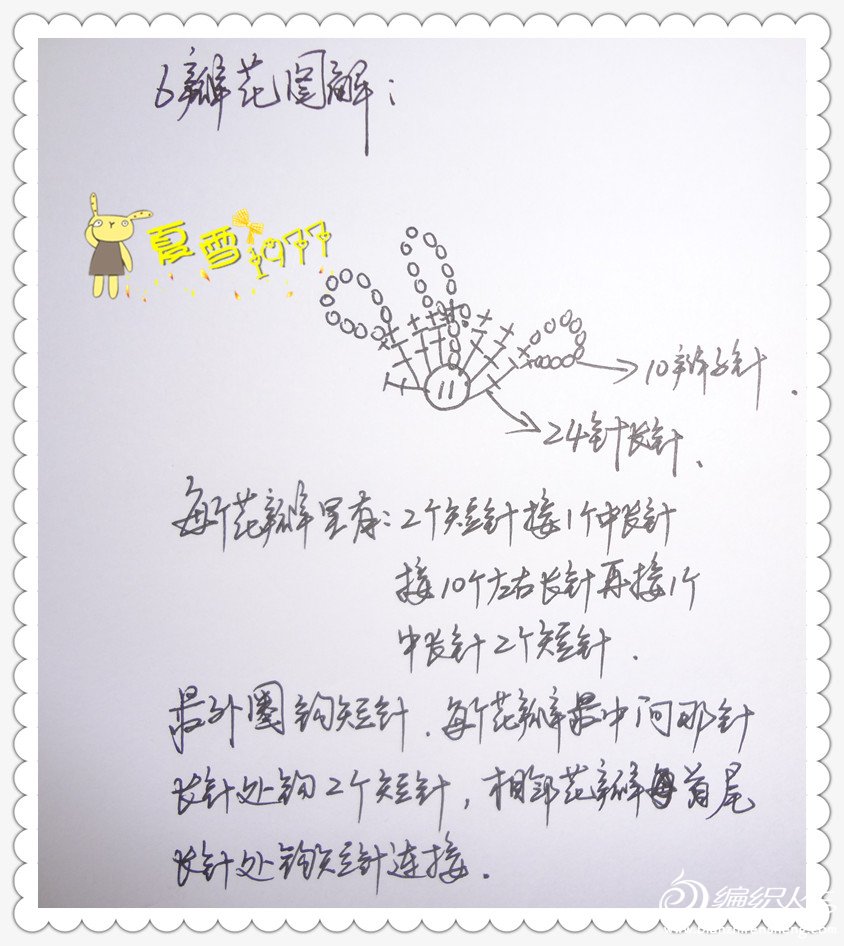 6瓣花图解：
夏雪1977
10辫子针．
24针长针．
每个花瓣里有：2个短针接1个中长针
接10个左右长针再接1个
中长针2个短针．
最外圈钩短针．每个花瓣最中间那针
长针处钩2个短针，相邻花瓣首尾
长针处钩短针连接．
编织人生